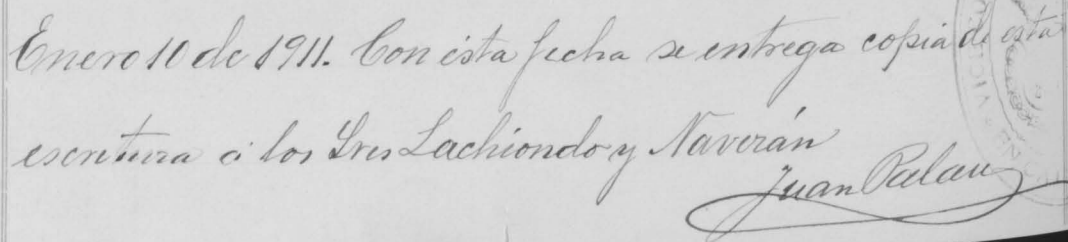 Enero 10 de 1911. Con ésta fecha se entrega copia de ésta
escritura á los Sres Lachiondo y Naverán
Juan Palau